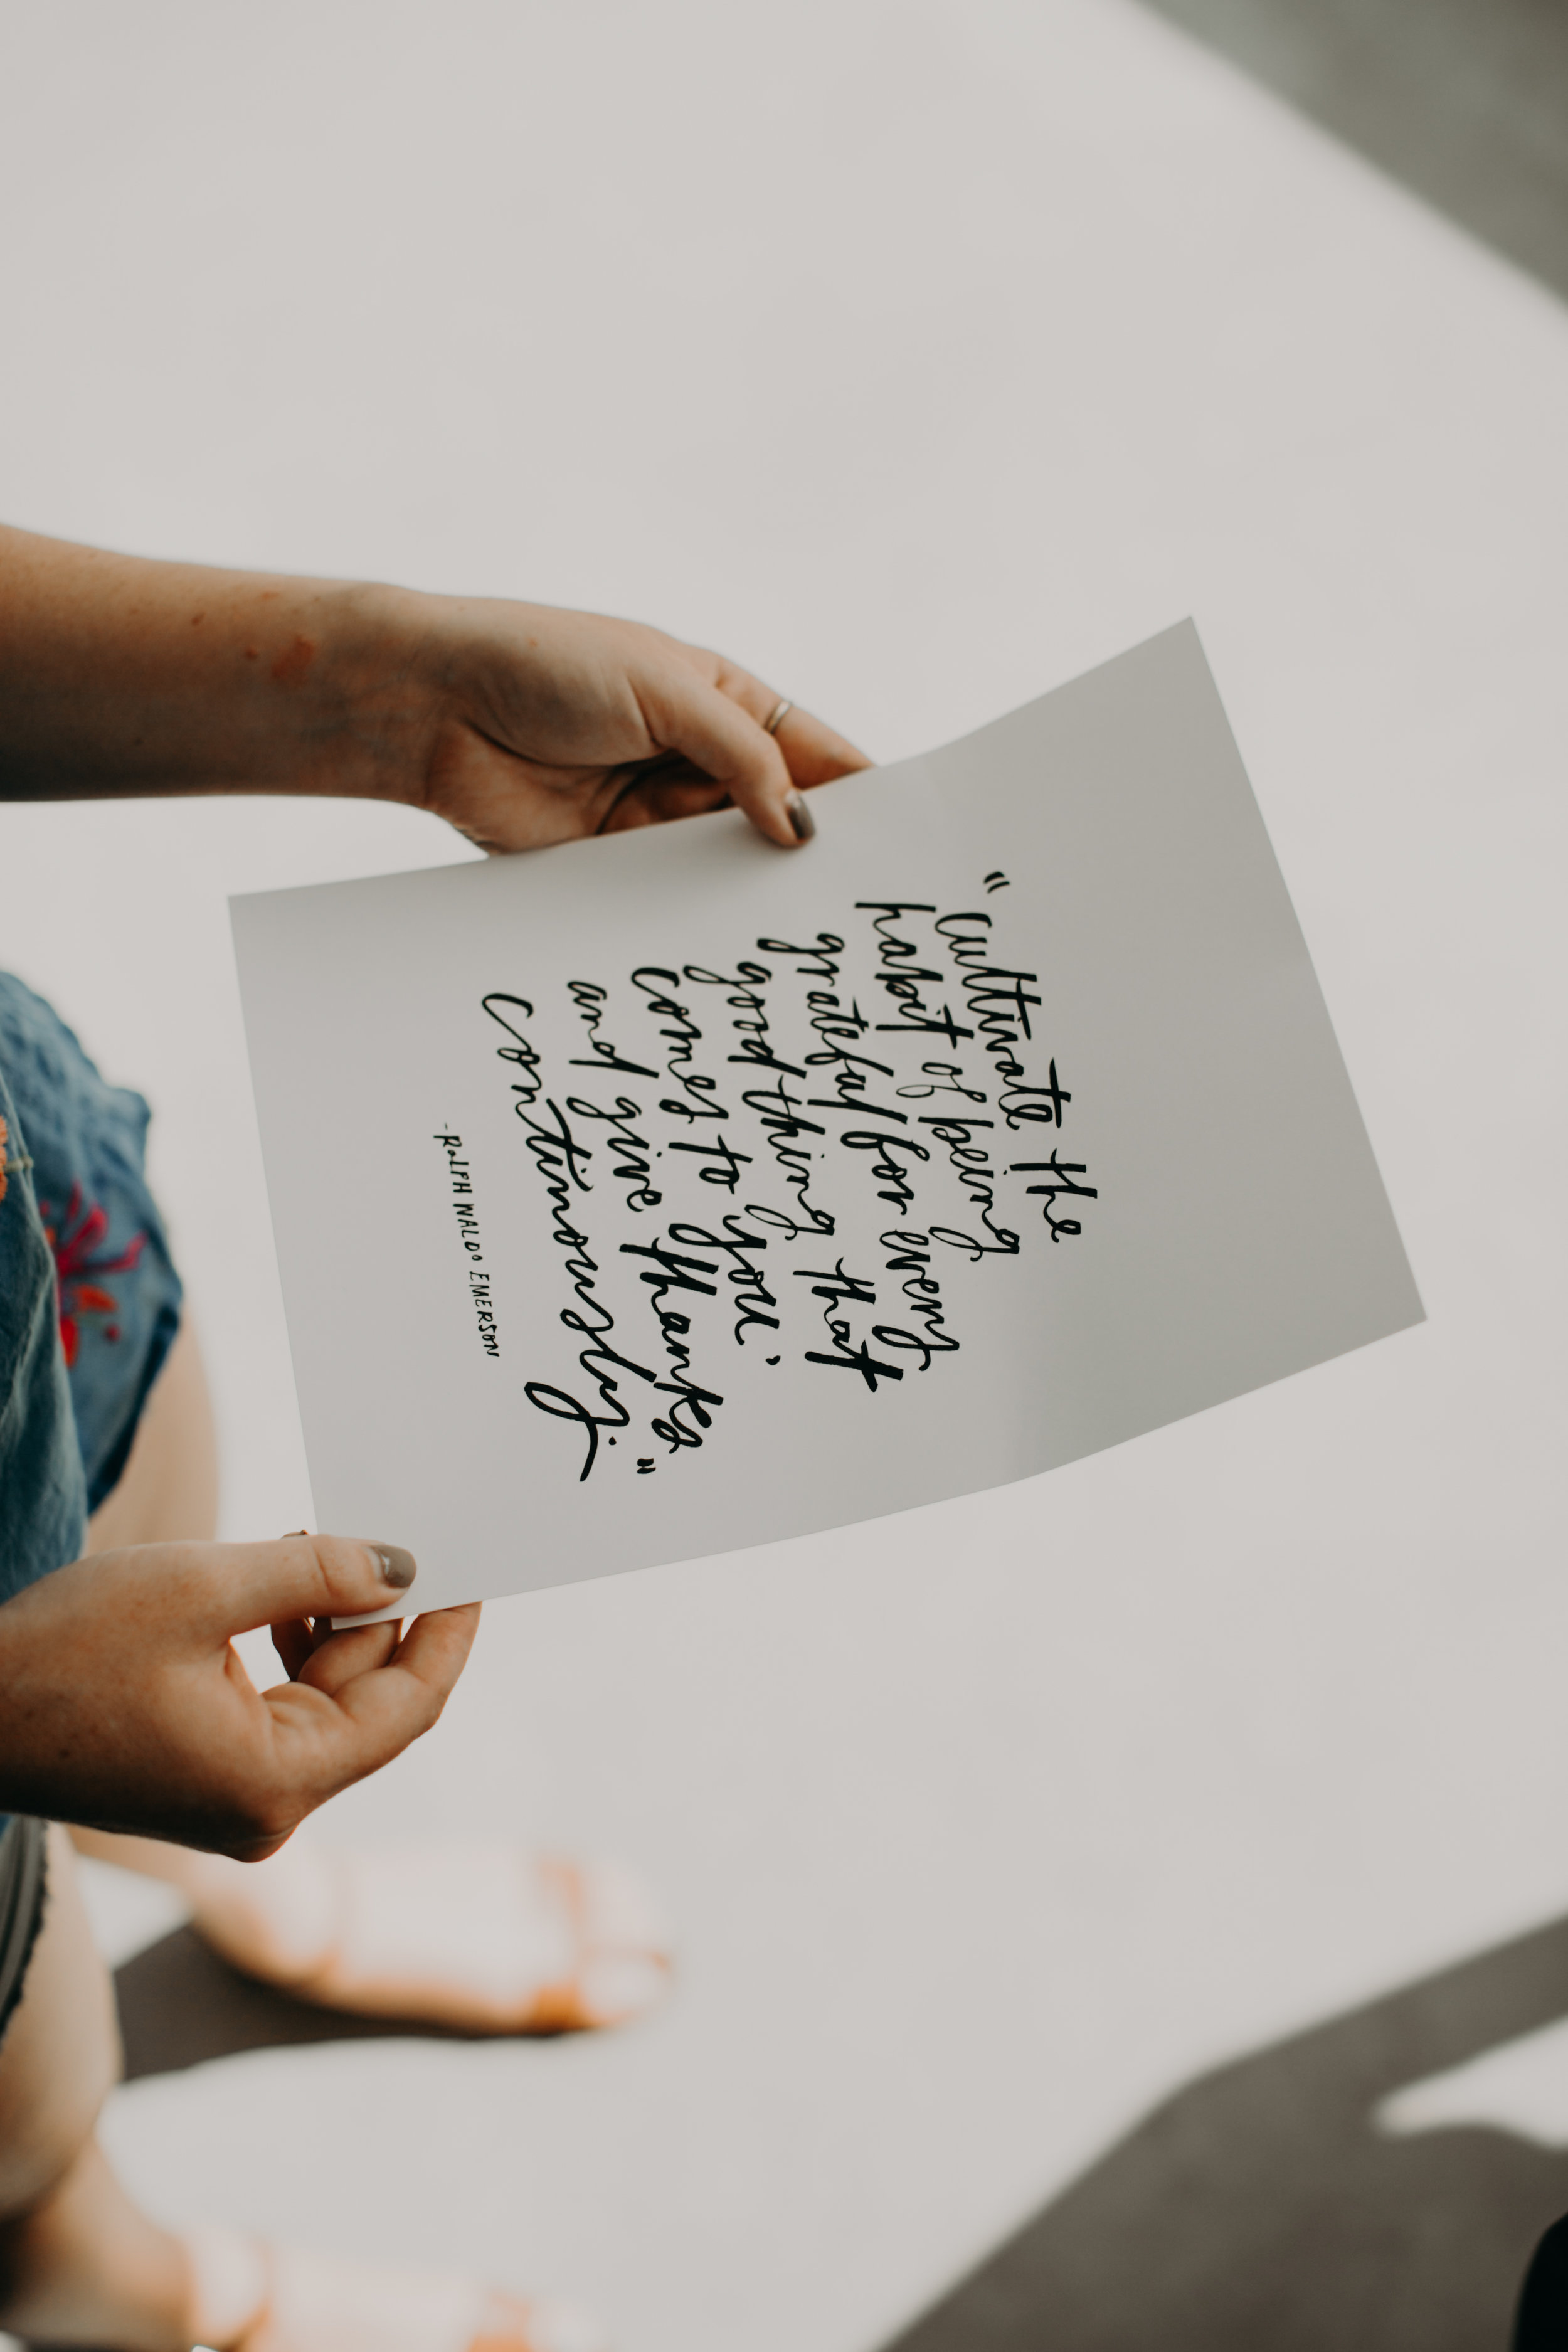 "Cultivate the
habit of being
grateful for every
good thing that
comes to you,
and give thanks
continously."
-RALPH WALDO EMERSON